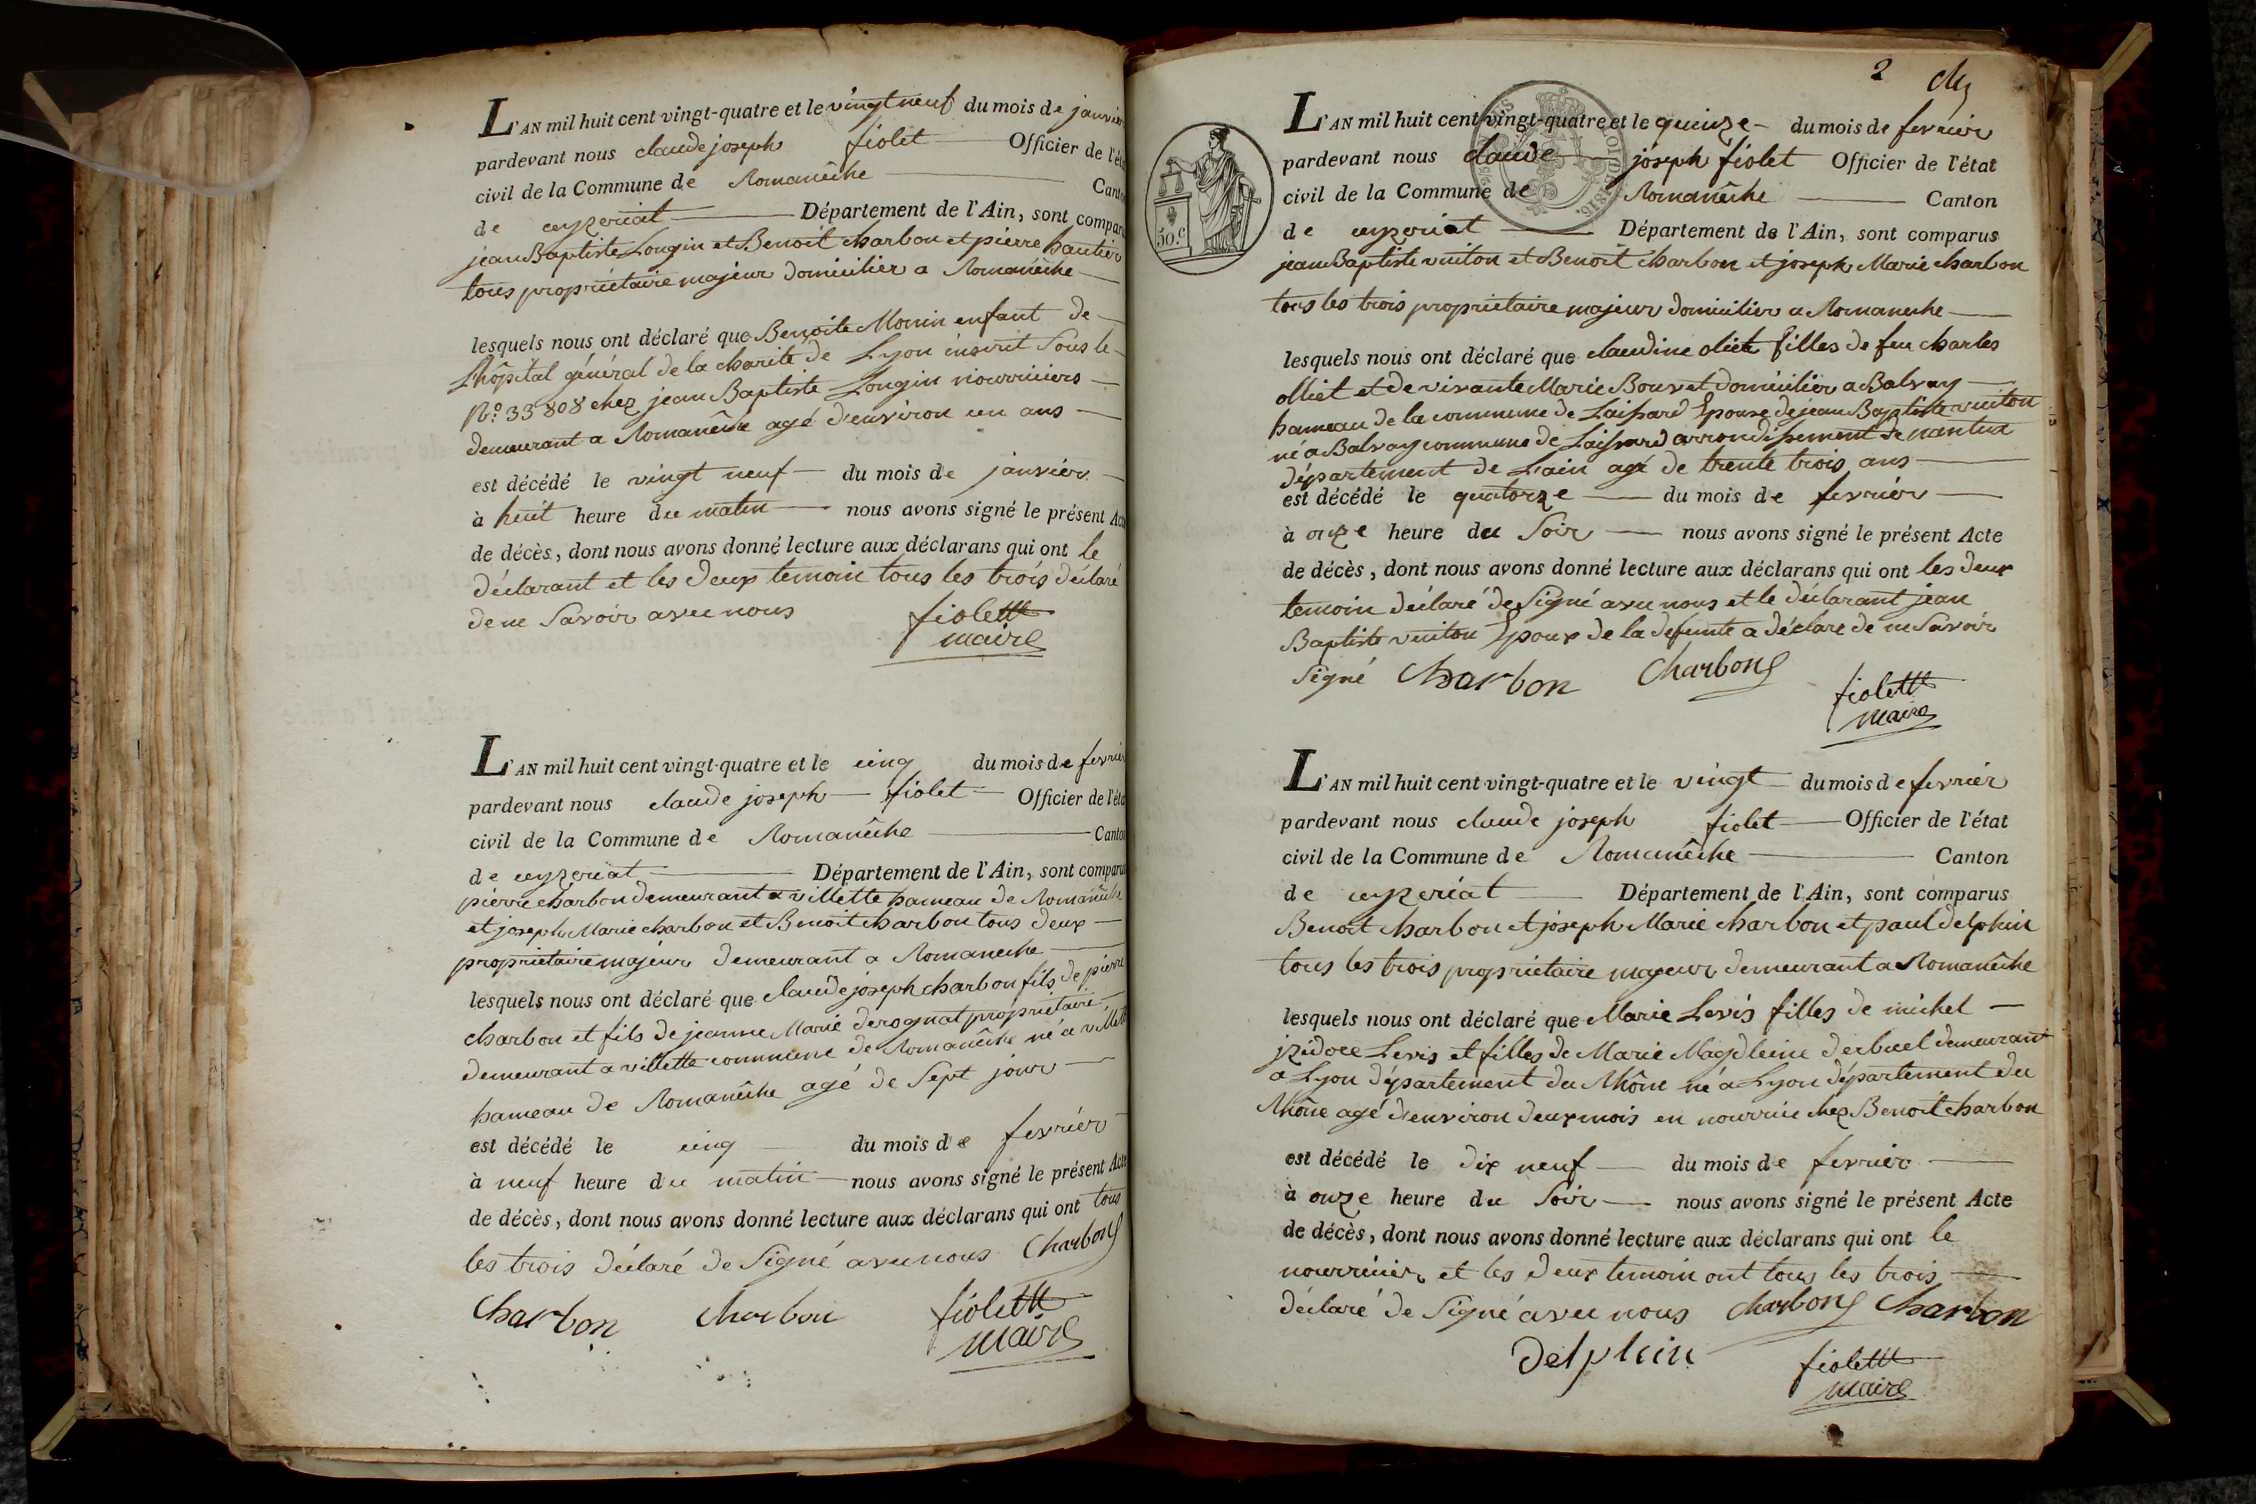 L'AN mil huit cent vingt-quatre et le vingt neuf du mois de janvier
pardevant nous claude joseph fiolet Officier de l'éta
civil de la Commune de Romanêche Canto
de ceyzeriat Département de l'Ain, sont comparu
jean Baptiste Longin et Benoit charbon et pierre hautier
tous propriétaire majeur domicilier a Romanêche
lesquels nous ont déclaré que Benoite Monin enfant de
L'hôpital général de la charité de Lyon inscrit Sous le
N.º 33808 chez jean Baptiste Longin nourriciers
demeurant a Romanêche agé d'environ un ans
est décédé le vingt neuf du mois de janvier
à huit heure du matin nous avons signé le présent Acte
de décès, dont nous avons donné lecture aux déclarans qui ont le
déclarant et les deux temoin tous les trois déclaré
de ne Savoir avec nous fiolet
maire
L'AN mil huit cent vingt-quatre et le cinq du mois de fevrier
pardevant nous claude joseph fiolet Officier de l'éta
civil de la Commune de Romanêche Canton
de ceyzeriat Département de l'Ain, sont comparus
pierre charbon demeurant a villette hameau de Romanêche
et joseph Marie charbon et Benoit charbon tous deux
propriétaire majeur demeurant a Romaneche
lesquels nous ont déclaré que claude joseph charbon fils de pierre
charbon et fils de jeanne Marie derognat propriétaire
demeurant a villette commune de Romanêche né a villette
hameau de Romanêche agé de Sept jour
est décédé le cinq du mois de fevrier
à neuf heure du matin nous avons signé le présent Acte
de décès, dont nous avons donné lecture aux déclarans qui ont tous
les trois déclaré de Signé avec nous Charbon
Charbon charbon fiolet
maire
2
50.c
1816.
L'AN mil huit cent vingt-quatre et le quinze du mois de fevrier
pardevant nous claude joseph fiolet Officier de l'état
civil de la Commune de Romanêche Canton
de ceyzeriat Département de l'Ain, sont comparus
jean Baptiste vuiton et Benoit charbon et joseph Marie charbon
tous les trois propriétaire majeur domicilier a Romaneche
lesquels nous ont déclaré que claudine oliet filles de feu charles
olliet et de vivante Marie Bouvet domicilier a Balvay
hameau de la commune de Laissard Epouse de jean Baptiste vuiton
né a Balvay commune de Laissard arrondissement de nantua
département de Lain agé de trente trois ans
est décédé le quatorze du mois de fevrier
à onze heure du Soir nous avons signé le présent Acte
de décès, dont nous avons donné lecture aux déclarans qui ont les deux
temoin déclaré de Signé avec nous et le déclarant jean
Baptiste vuiton Epoux de la defunte a déclaré de ne Savoir
Signé Charbon Charbon
fiolet
maire
L'AN mil huit cent vingt-quatre et le vingt du mois de fevrier
pardevant nous claude joseph fiolet Officier de l'état
civil de la Commune de Romanêche Canton
de ceyzeriat Département de l'Ain, sont comparus
Benoit charbon et joseph Marie charbon et paul delphin
tous les trois propriétaire majeur demeurant a Romanêche
lesquels nous ont déclaré que Marie Levis filles de michel
jzidore Levis et filles de Marie Magdleine derbuel demeurant
a Lyon département du Rhône né a Lyon département du
Rhône agé d'environ deux mois en nourrice chez Benoit charbon
est décédé le dix neuf du mois de fevrier
à onze heure du Soir nous avons signé le présent Acte
de décès, dont nous avons donné lecture aux déclarans qui ont le
nourricier et les deux temoin ont tous les trois
déclaré de Signé avec nous charbon Charbon
Delphin fiolet
maire